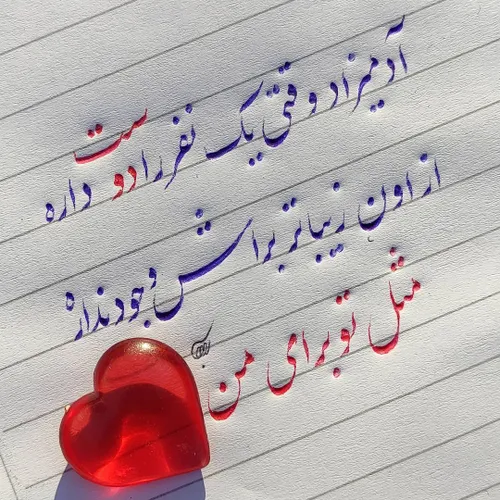 آدمیزاد وقتی یک نفر را دوست داره
از اون زیباتر براش وجود نداره
مثل تو برای من